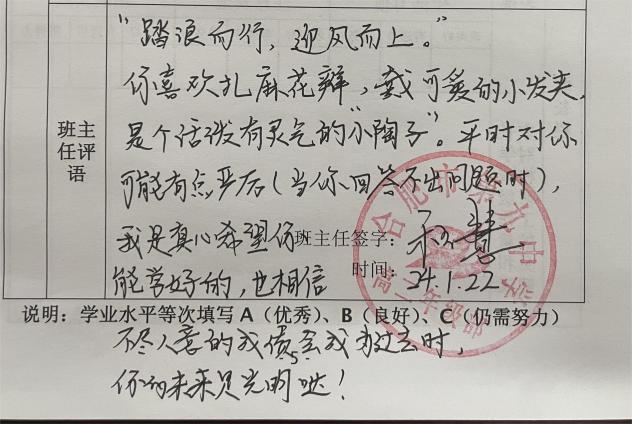 “踏浪而行，迎风而上。”
你喜欢扎麻花辫，戴可爱的小发夹，
班主
任评
语
是个活泼有灵气的“小陶子”。平时对你
可能有点严厉（当你回答不出问题时），
我是真心希望你
班主任签字：
能学好的，也相信
时间：24.1.22
合肥市第九中学
高二年级部
说明：学业水平等次填写 A（优秀）、B（良好）、C（仍需努力）
不尽人意的成绩会成为过去时，
5
你的未来是光明哒！